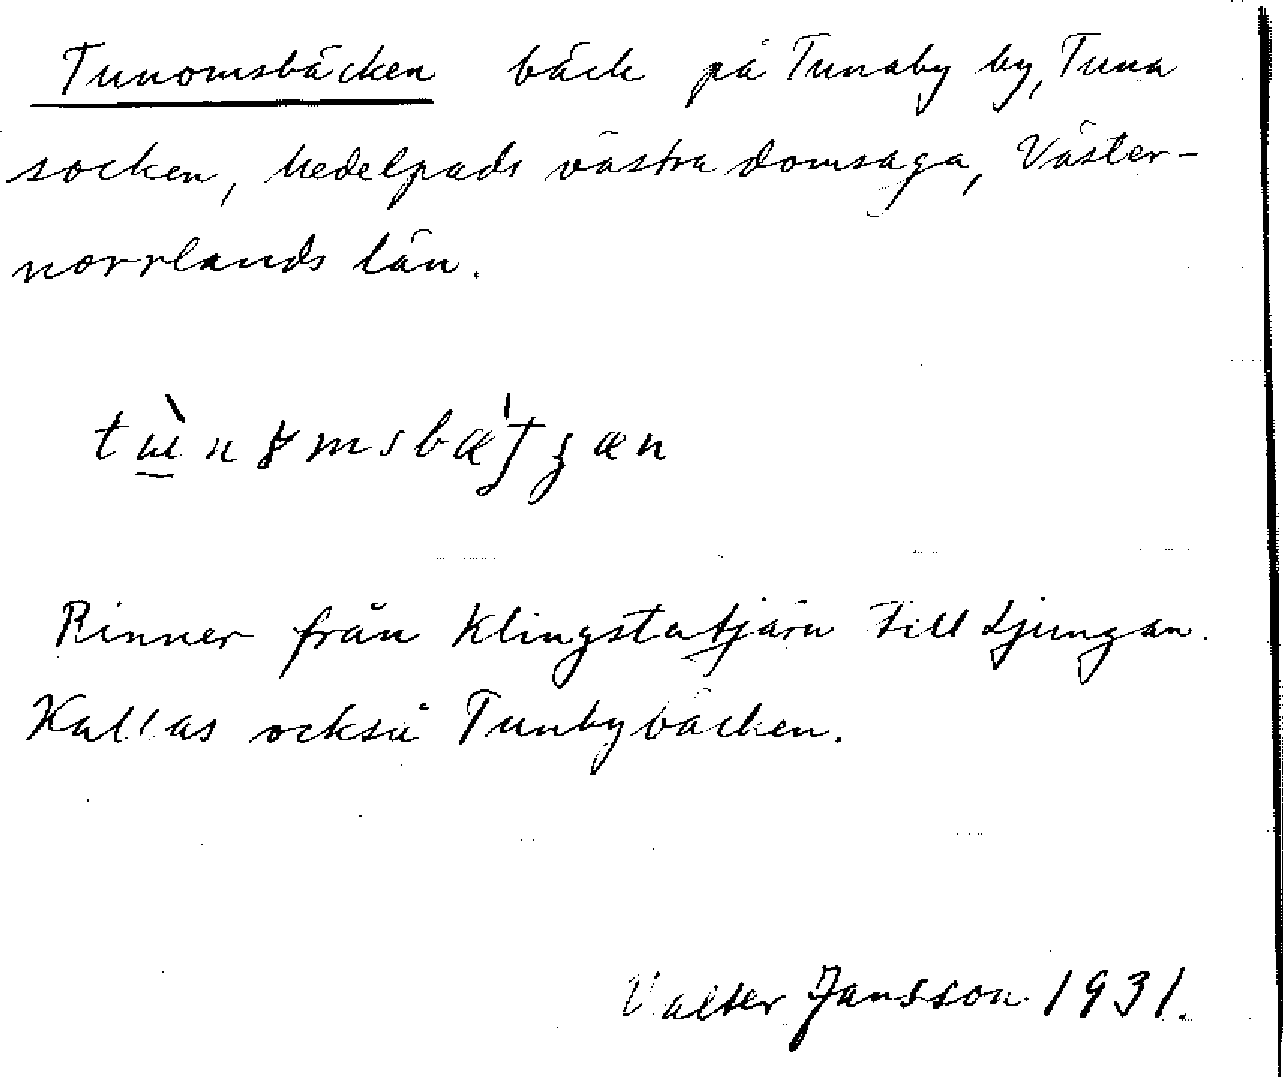 Tunomsbäcken bäck på Tunaby by, Tuna
socken, Medelpads västra domsaga, Väster-
norrlands län.
Rinner från Klingstatjärn till Ljungan.
Kallas också Tunbybäcken.
Valter Jansson 1931.